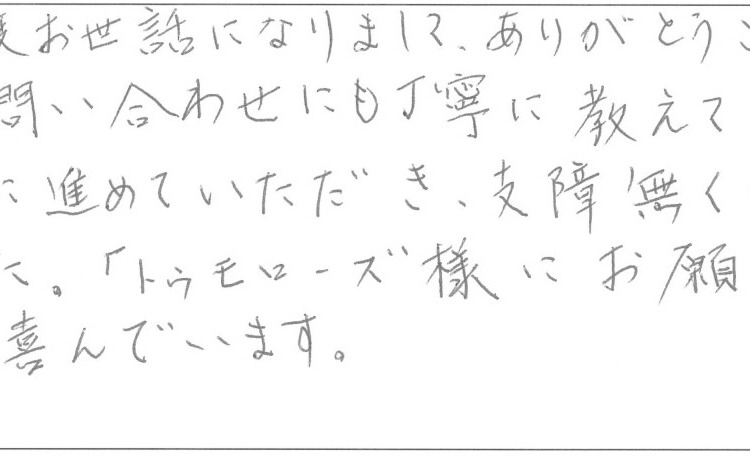 お世話になりまして、ありがとうご
問い合わせにも丁寧に教えて
に進めていただき、支障無く
た。「トゥモローズ様にお願
喜んでいます。